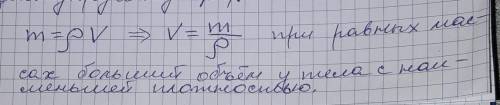 m = ρV ⇒ V = m/ρ при равных мас-
сах больший объём у тела с наи-
меньшей плотностью.